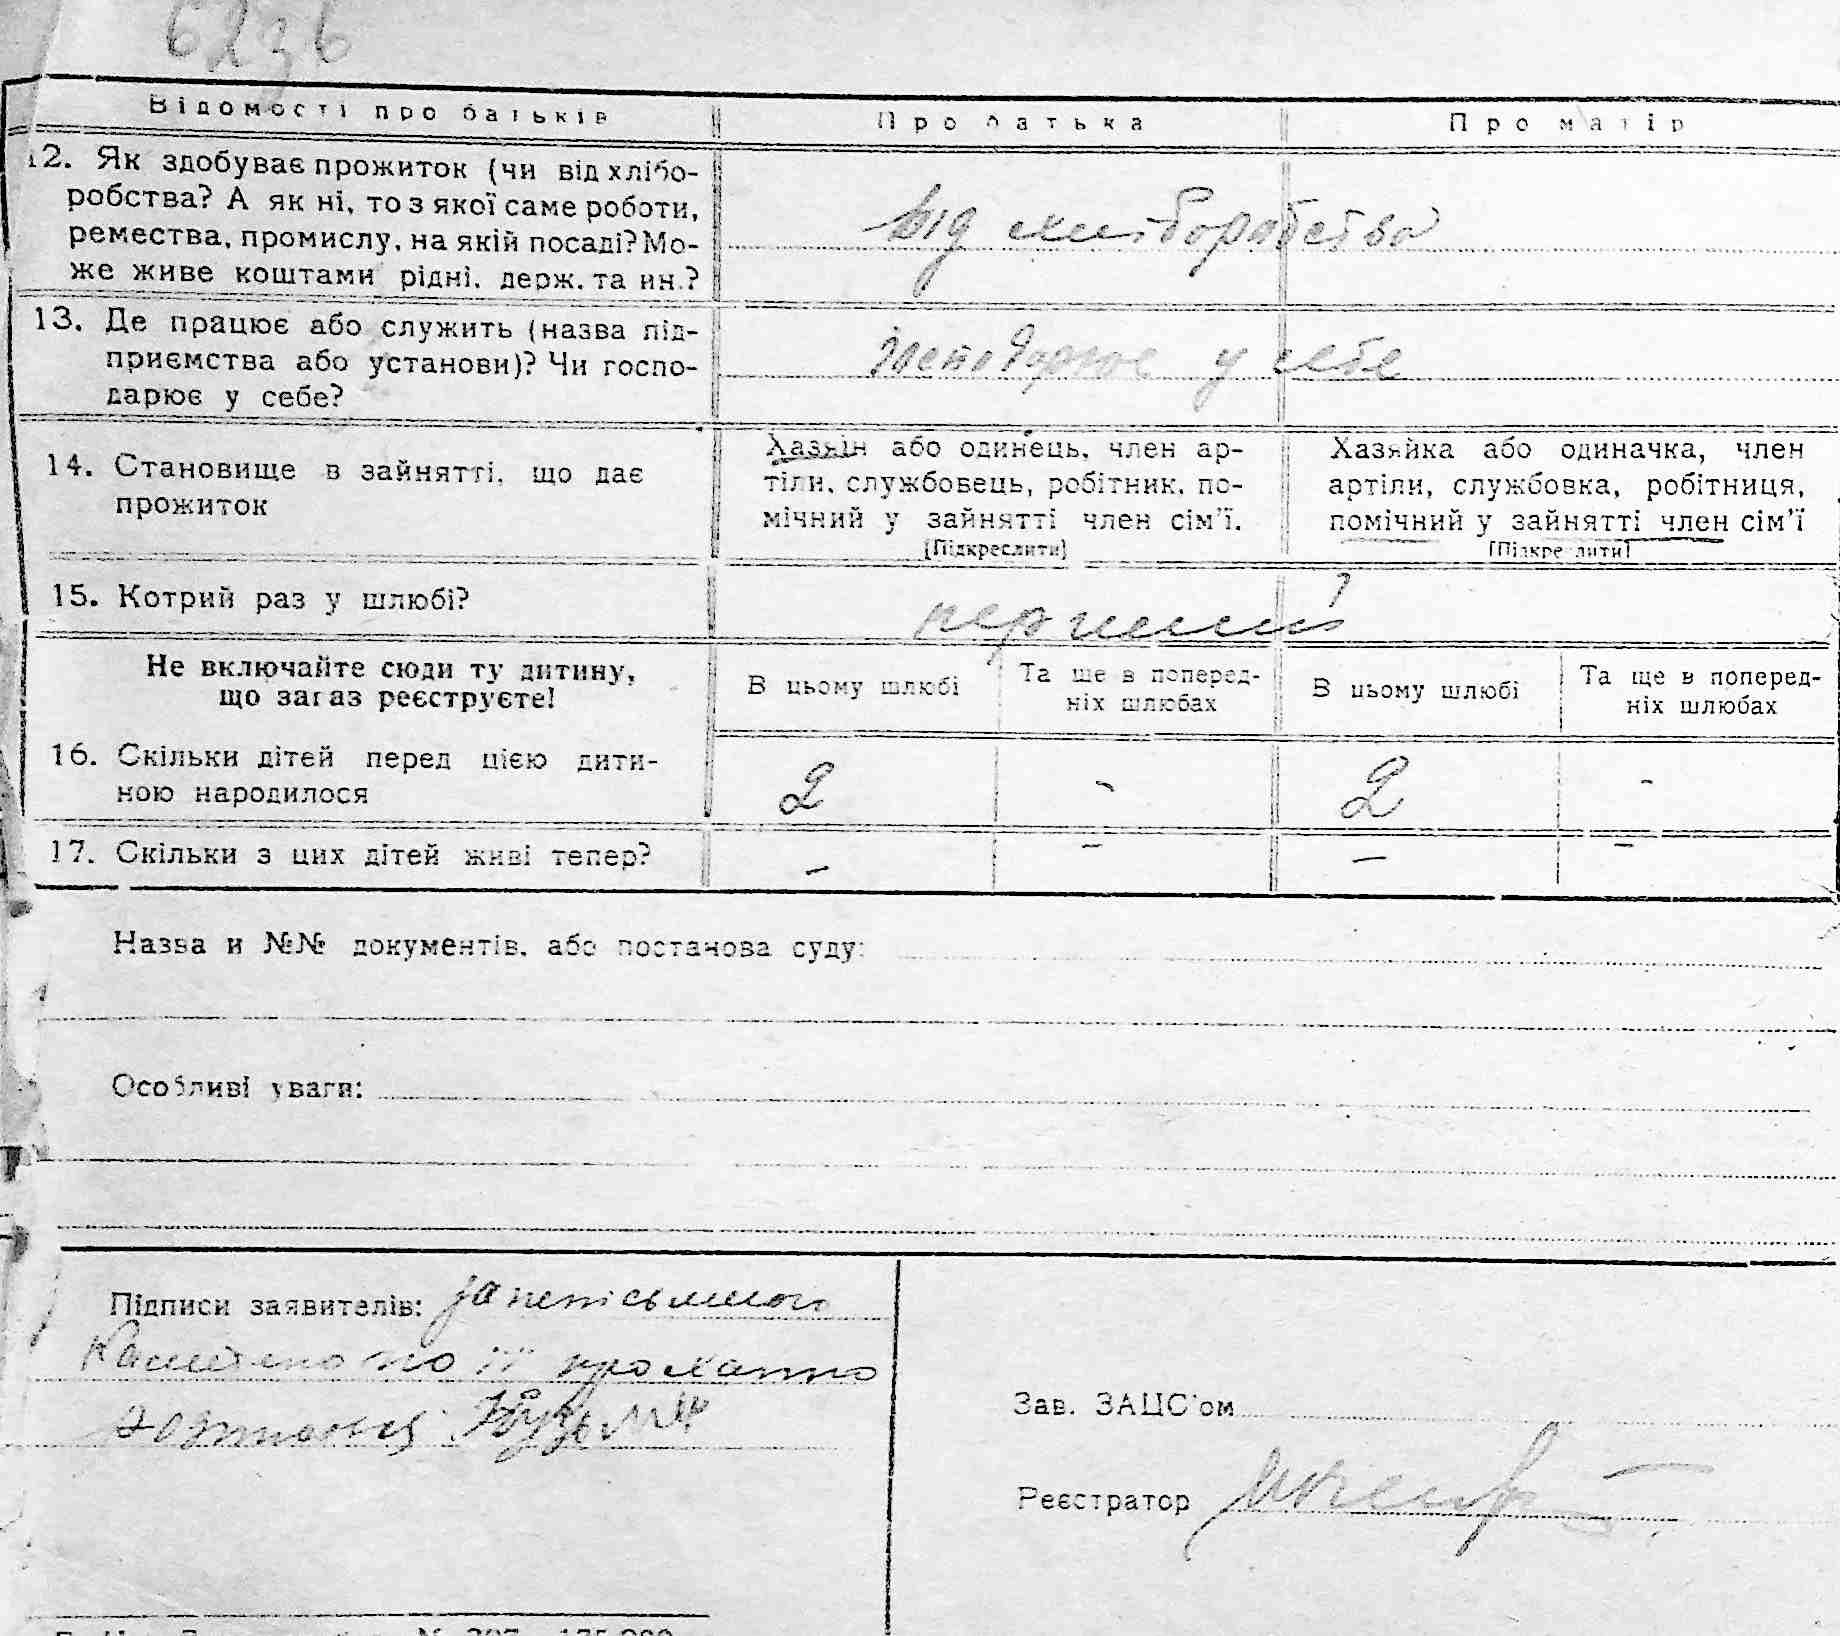 623б
Відомості про батьків Про батька Про матір
12. Як здобуває прожиток (чи від хлібо-
робства? А як ні, то з якої саме роботи,
ремества, промислу, на якій посаді? Мо-
же живе коштами рідні, держ. та ин.?
від хліборобства
13. Де працює або служить (назва під-
приємства або установи)? Чи госпо-
дарює у себе?
господарює у себе
14. Становище в зайнятті, що дає
прожиток
Хазяїн або одинець, член ар-
тіли, службовець, робітник, по-
мічний у зайнятті член сім'ї.
[Підкреслити]
Хазяйка або одиначка, член
артіли, службовка, робітниця,
помічний у зайнятті член сім'ї
[Підкреслити]
15. Котрий раз у шлюбі? перший
Не включайте сюди ту дитину,
що зараз реєструєте!
В цьому шлюбі Та ще в поперед-
ніх шлюбах
В цьому шлюбі Та ще в поперед-
ніх шлюбах
16. Скільки дітей перед цією дити-
ною народилося
2 - 2 -
17. Скільки з цих дітей живі тепер?
- - - -
Назва и №№ документів, або постанова суду:
Особливі уваги:
Підписи заявителів: за неписьмного
по проханню
Зав. ЗАЦС'ом
Реєстратор